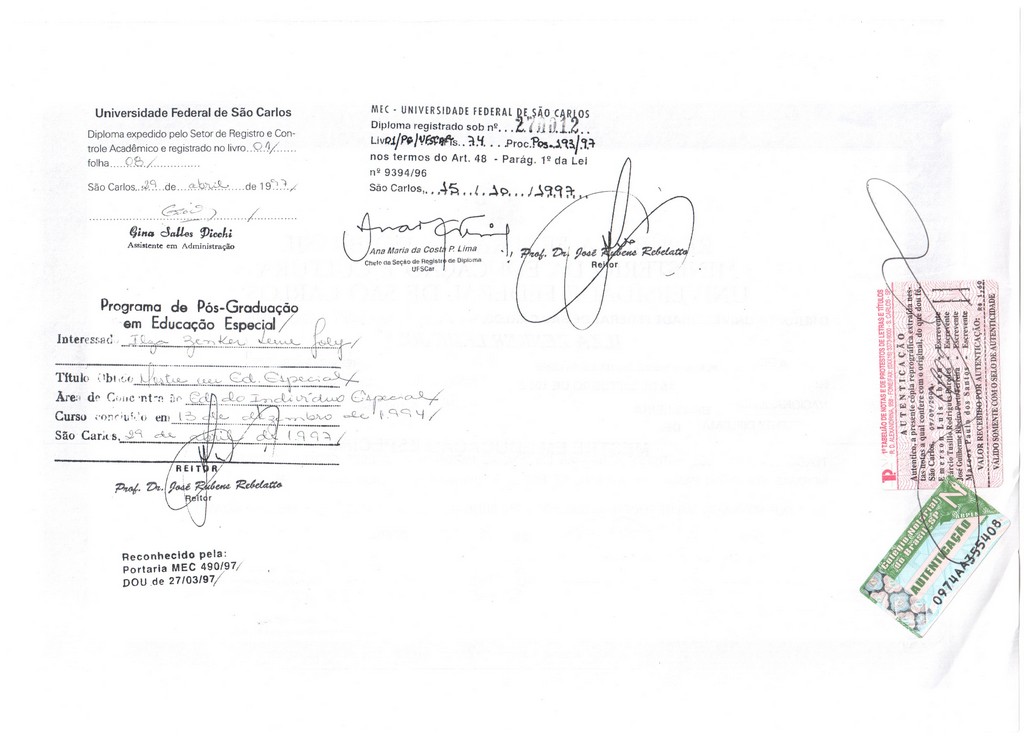 Universidade Federal de São Carlos
Diploma expedido pelo Setor de Registro e Con-
trole Acadêmico e registrado no livro...01/......
folha....08/..............
São Carlos,..29..de...abril....de 1997/
Gina Salles Picchi
Assistente em Administração
MEC - UNIVERSIDADE FEDERAL DE SÃO CARLOS
Diploma registrado sob nº...270012..
Livro1/PG/UFSCar fls..74....Proc.Pos.193/97
nos termos do Art. 48 - Parág. 1º da Lei
nº 9394/96
São Carlos,...15../..10.../1997..
Ana Maria da Costa P. Lima
Chefe da Seção de Registro de Diploma
UFSCar
Prof. Dr. José Rubens Rebelatto
Reitor
Programa de Pós-Graduação
em Educação Especial/
Interessad Ilza Zenker Leme Joly
Título obtido Mestre em Ed. Especial
Área de Concentração Ed. do Indivíduo Especial
Curso concluído em 13 de dezembro de 1994/
São Carlos, 29 de abril de 1997/
REITOR
Prof. Dr. José Rubens Rebelatto
Reitor
Reconhecido pela:
Portaria MEC 490/97/
DOU de 27/03/97/
1º TABELIÃO DE NOTAS E DE PROTESTOS DE LETRAS E TÍTULOS
AUTENTICAÇÃO
Autentico, a presente cópia reprográfica extraída nes-
tas notas a qual confere com o original, do que dou fé.
São Carlos,
Emerson Luis Abram - Escrevente
Marcos Paulo dos Santos - Escrevente
VALOR RECEBIDO POR AUTENTICAÇÃO:
VÁLIDO SOMENTE COM O SELO DE AUTENTICIDADE
Colégio Notarial
do Brasil-SP
AUTENTICAÇÃO
0974AA355408